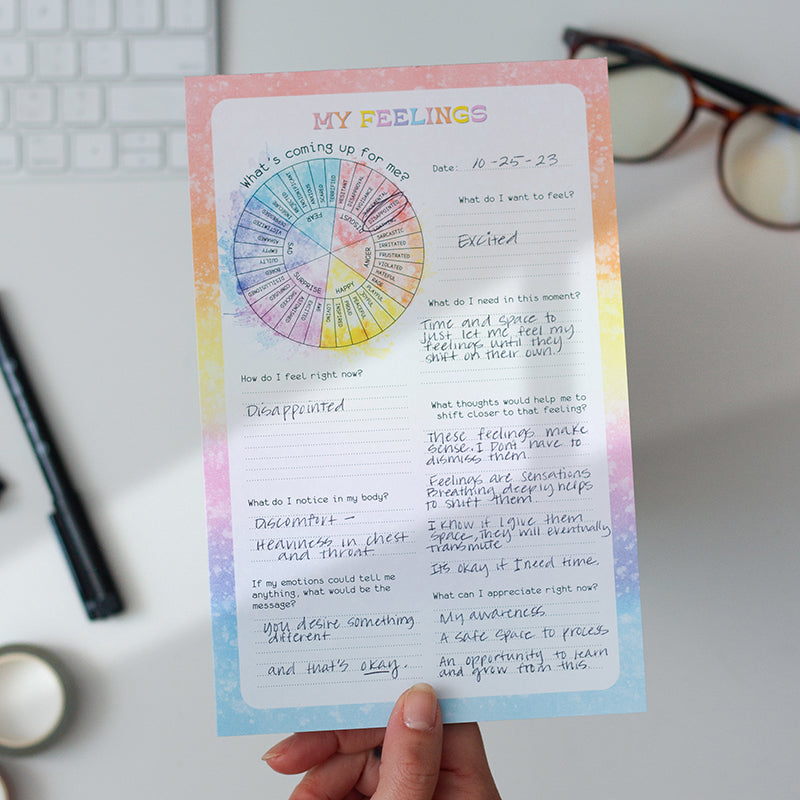 MY FEELINGS
What's coming up for me?
Date: 10-25-23
INSECURE
INSIGNIFICANT
ANXIOUS
SCARED
TERRIFIED
FEAR
HESITANT
DISAPPROVAL
AVOIDANCE
JUDGMENTAL
DISAPPOINTED
DISGUST
SARCASTIC
IRRITATED
FRUSTRATED
VIOLATED
HATEFUL
RAGE
ANGER
PLAYFUL
JOYFUL
PEACEFUL
PROUD
INSPIRED
LOVING
HAPPY
AWE
EXCITED
ASTONISHED
SHOCKED
CONFUSED
DISILLUSIONED
SURPRISE
BORED
GUILTY
EMPTY
ASHAMED
VICTIMIZED
DEPRESSED
SAD
What do I want to feel?
Excited
What do I need in this moment?
Time and space to
just let me feel my
feelings until they
shift on their own.
How do I feel right now?
Disappointed
What thoughts would help me to
shift closer to that feeling?
These feelings make
sense. I Dont have to
dismiss them.
Feelings are sensations
Breathing deeply helps
to shift them
I know if I give them
space, they will eventually
transmute
Its okay if I need time.
What do I notice in my body?
Discomfort -
Heaviness in chest
and throat
If my emotions could tell me
anything, what would be the
message?
you desire something
different
and that's okay.
What can I appreciate right now?
My awareness
A safe space to process
An opportunity to learn
and grow from this